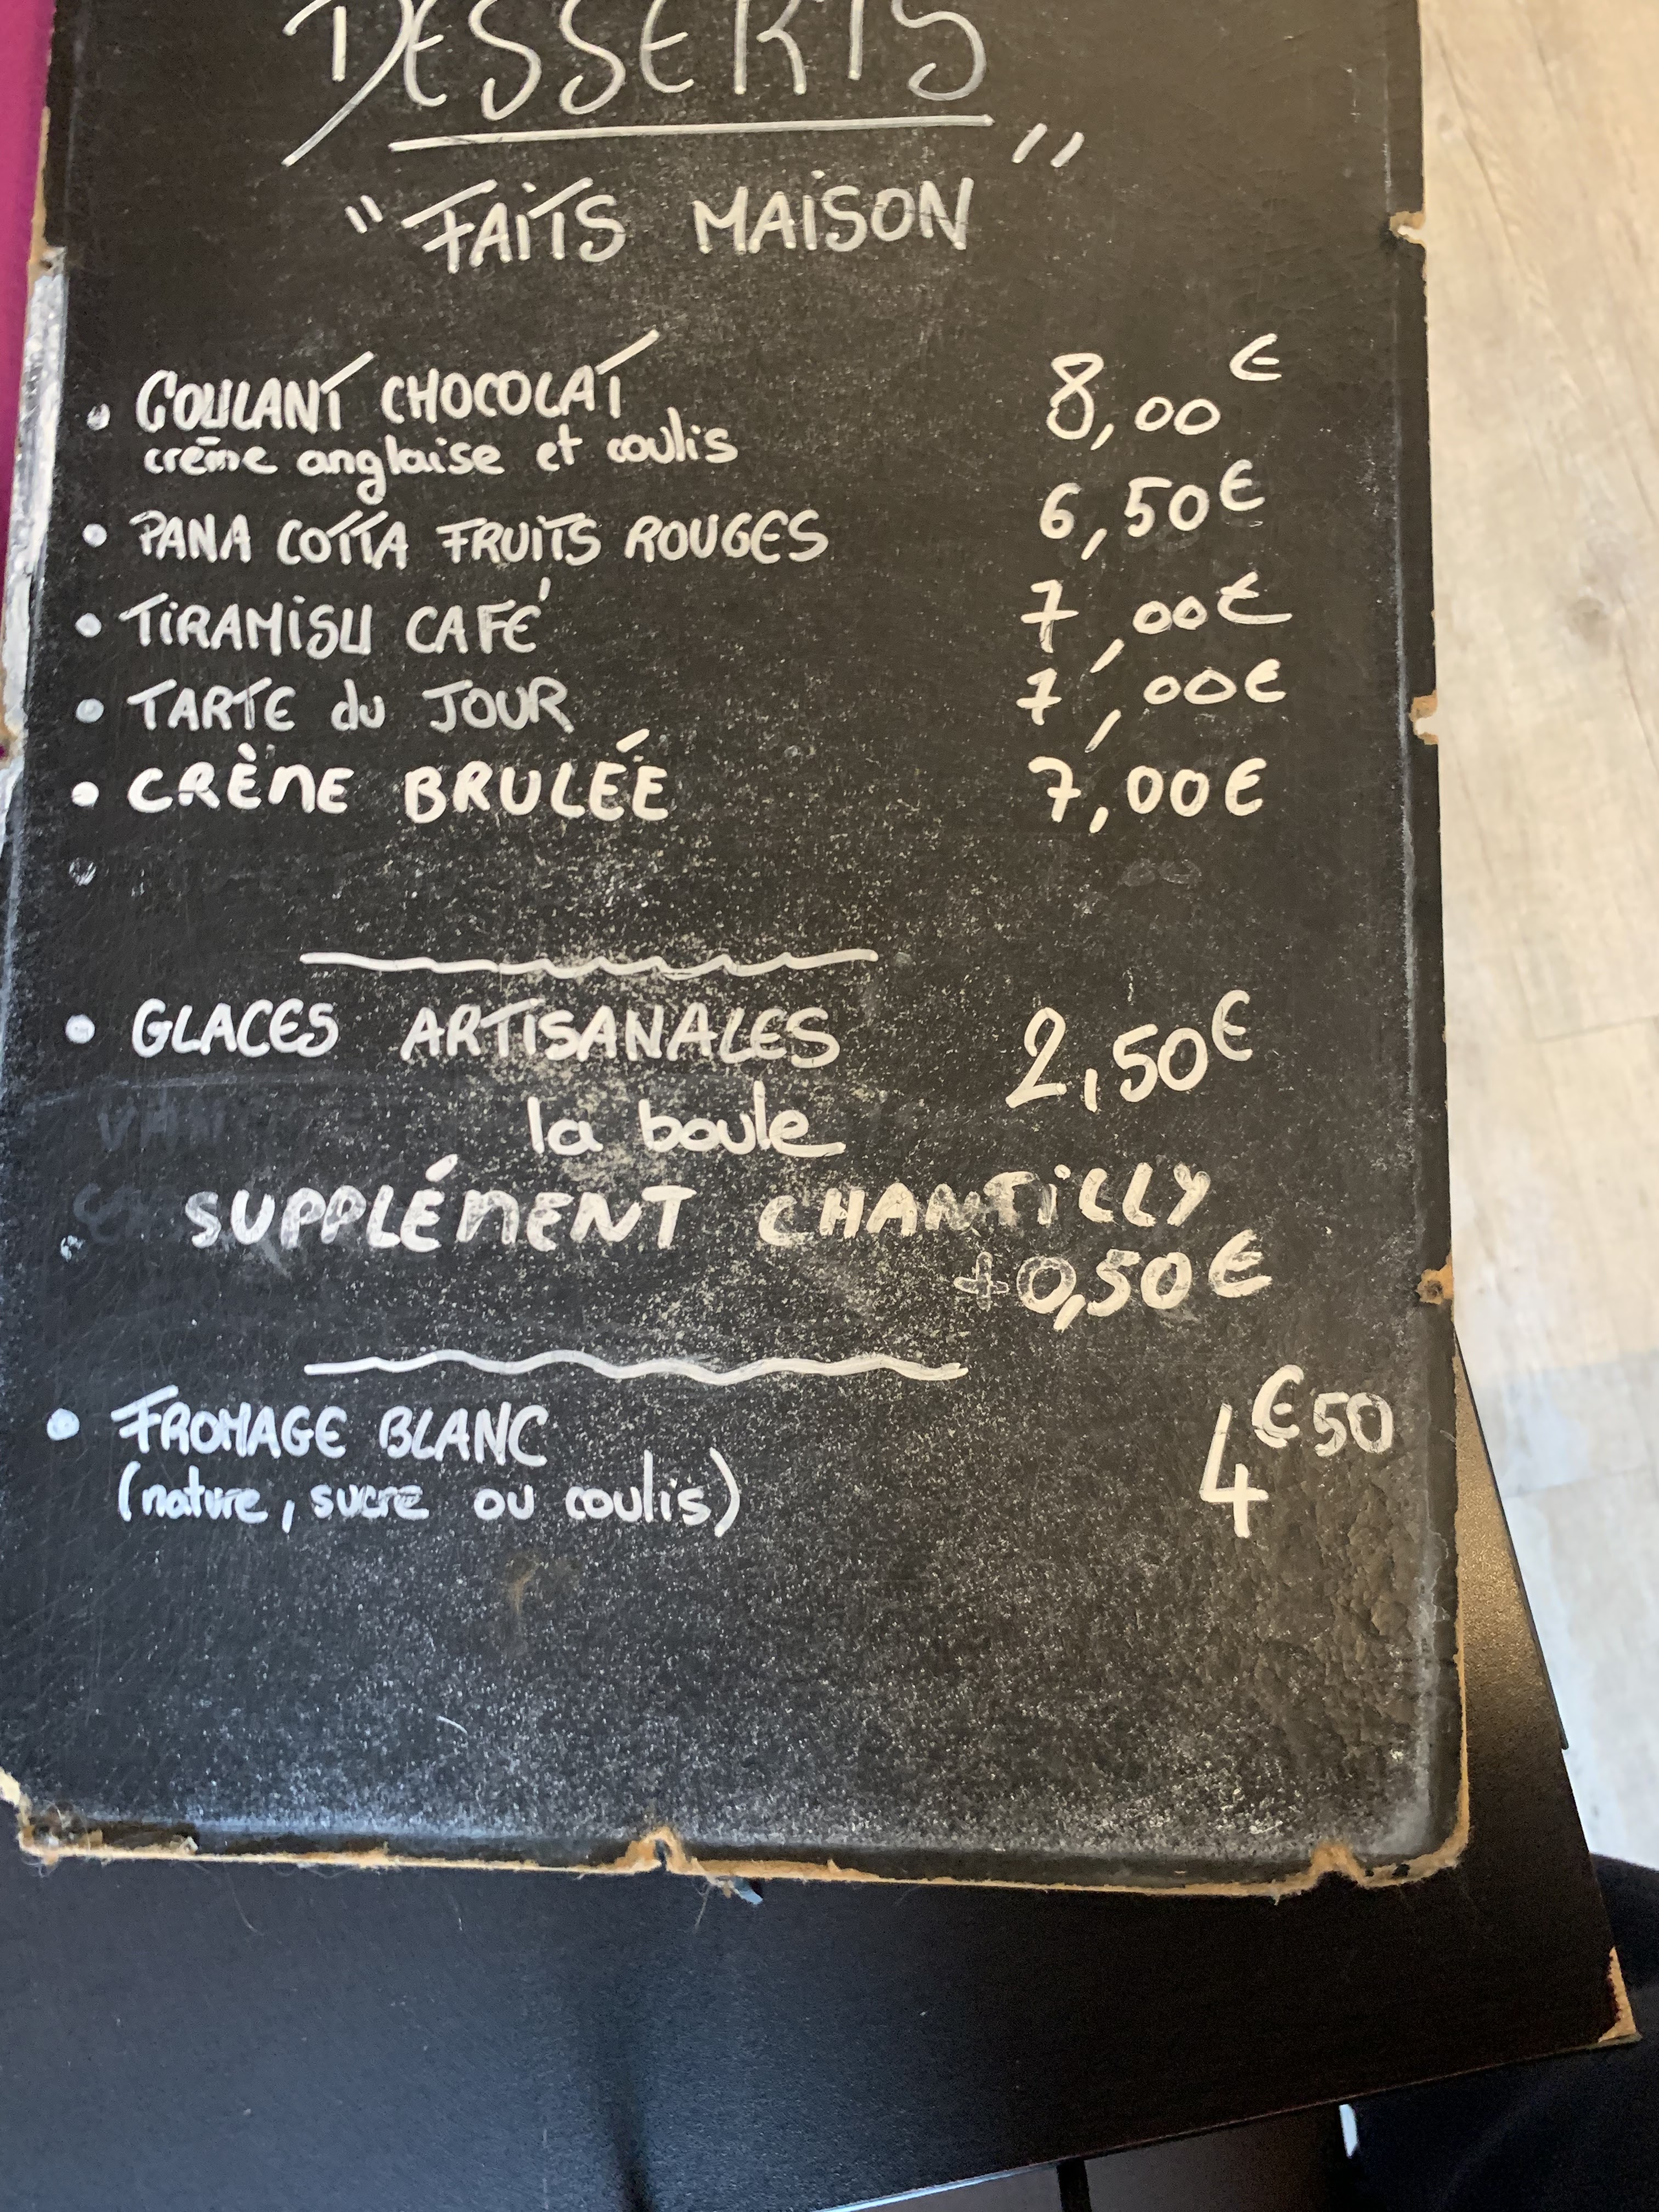 DESSERTS
"FAITS MAISON"
• COULANT CHOCOLAT 8,00€
crème anglaise et coulis
• PANA COTTA FRUITS ROUGES 6,50€
• TIRAMISU CAFÉ 7,00€
• TARTE du JOUR 7,00€
• CRÈME BRULÉE 7,00€
• GLACES ARTISANALES 2,50€
la boule
SUPPLÉMENT CHANTILLY
+0,50€
• FROMAGE BLANC 4€50
(nature, sucre ou coulis)